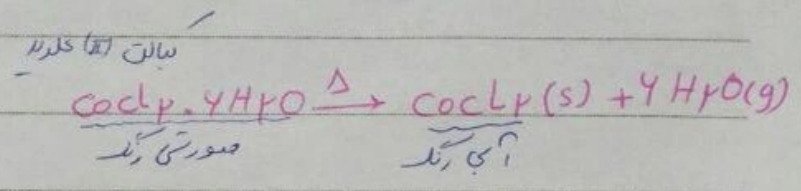 کبالت (II) کلرید
CoCl۲.۶H۲O Δ→ CoCl۲(s) + ۶H۲O(g)
صورتی رنگ آبی رنگ